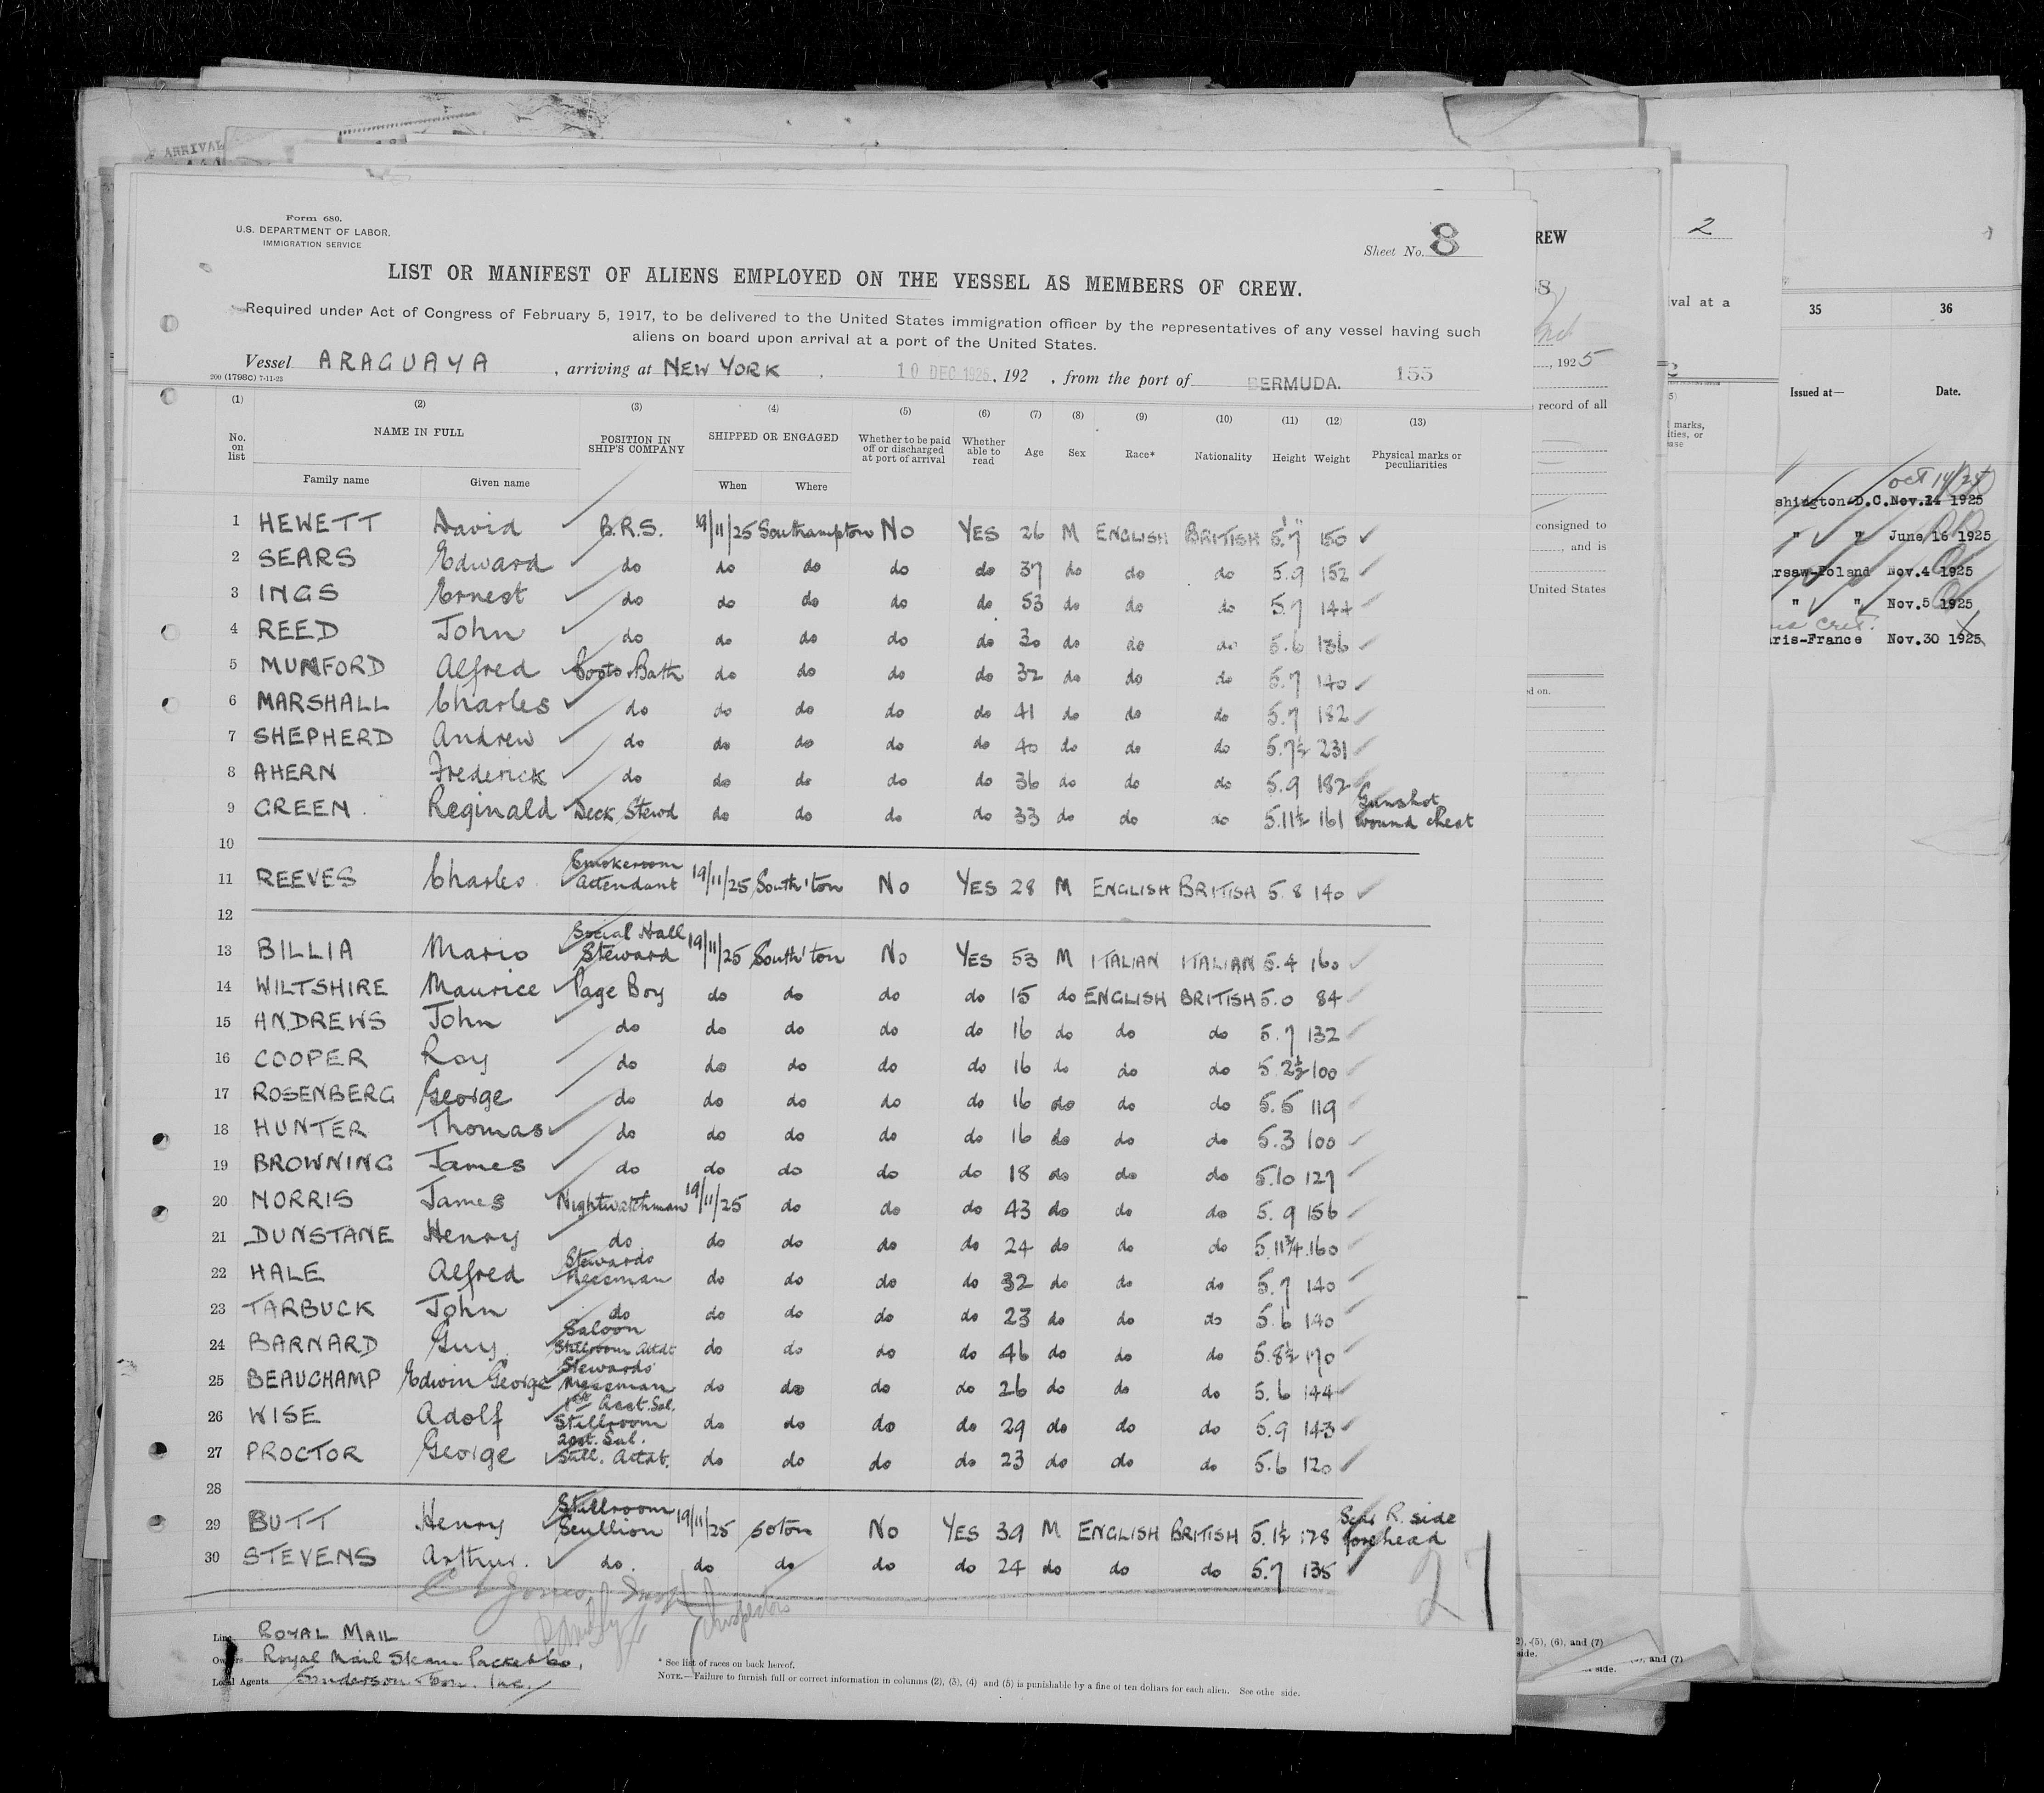 ARRIVAL
Form 680.
U.S. DEPARTMENT OF LABOR.
IMMIGRATION SERVICE
Sheet No. 8
LIST OR MANIFEST OF ALIENS EMPLOYED ON THE VESSEL AS MEMBERS OF CREW.
Required under Act of Congress of February 5, 1917, to be delivered to the United States immigration officer by the representatives of any vessel having such
aliens on board upon arrival at a port of the United States.
Vessel ARAGUAYA, arriving at NEW YORK 10 DEC 1925, 192 , from the port of BERMUDA. 155
200 (1798C) 7-11-23
(1) (2) (3) (4) (5) (6) (7) (8) (9) (10) (11) (12) (13)
No. on list NAME IN FULL POSITION IN SHIP'S COMPANY SHIPPED OR ENGAGED Whether to be paid off or discharged at port of arrival Whether able to read Age Sex Race* Nationality Height Weight Physical marks or peculiarities
Family name Given name When Where
1 HEWETT David B.R.S. 19/11/25 Southampton No YES 26 M ENGLISH BRITISH 5'.7" 150
2 SEARS Edward do do do do do 37 do do do 5.9 152
3 INGS Ernest do do do do do 53 do do do 5.7 144
4 REED John do do do do do 30 do do do 5.6 136
5 MUMFORD Alfred Boots Bath do do do do 32 do do do 5.7 140
6 MARSHALL Charles do do do do do 41 do do do 5.7 182
7 SHEPHERD Andrew do do do do do 40 do do do 5.7½ 231
8 AHERN Frederick do do do do do 36 do do do 5.9 182
9 GREEN. Reginald Deck Stewd do do do do 33 do do do 5.11½ 161 Gunshot wound chest
10
11 REEVES Charles. Smokeroom Attendant 19/11/25 South'ton No YES 28 M ENGLISH BRITISH 5.8 140
12
13 BILLIA Mario Social Hall Steward 19/11/25 South'ton No YES 53 M ITALIAN ITALIAN 5.4 160
14 WILTSHIRE Maurice Page Boy do do do do 15 do ENGLISH BRITISH 5.0 84
15 ANDREWS John do do do do do 16 do do do 5.7 132
16 COOPER Roy do do do do do 16 do do do 5.2½ 100
17 ROSENBERG George do do do do do 16 do do do 5.5 119
18 HUNTER Thomas do do do do do 16 do do do 5.3 100
19 BROWNING James do do do do do 18 do do do 5.10 127
20 MORRIS James Nightwatchman 19/11/25 do do do 43 do do do 5.9 156
21 DUNSTANE Henry do do do do do 24 do do do 5.11¾ 160
22 HALE Alfred Stewards Messman do do do do 32 do do do 5.7 140
23 TARBUCK John do do do do do 23 do do do 5.6 140
24 BARNARD Guy. Saloon Stillroom Attdt do do do do 46 do do do 5.8½ 170
25 BEAUCHAMP Edwin George Stewards Messman do do do do 26 do do do 5.6 144
26 WISE Adolf 1st Asst. Sal. Stillroom do do do do 29 do do do 5.9 143
27 PROCTOR George Asst. Sal. Still. Attdt. do do do do 23 do do do 5.6 120
28
29 BUTT Henry Stillroom Scullion 19/11/25 Soton No YES 39 M ENGLISH BRITISH 5.1½ 128 Scar R. side forehead
30 STEVENS Arthur. do. do do do do 24 do do do 5.7 135
27
Jones, Inspectors
Line ROYAL MAIL
Owners Royal Mail Steam Packet Co.
Local Agents Sanderson & Son. Inc.
* See list of races on back hereof.
NOTE.—Failure to furnish full or correct information in columns (2), (3), (4) and (5) is punishable by a fine of ten dollars for each alien. See othe side.
REW
, 1925
record of all
consigned to
, and is
United States
ed on.
2), (5), (6), and (7)
side.
2
val at a
marks,
ities, or
ease
, and (7)
side.
35 36
Issued at— Date.
Oct 14/24
shington-D.C. Nov.24 1925
" " June 16 1925
rsaw-Poland Nov.4 1925
" " Nov.5 1925
ris-France Nov.30 1925